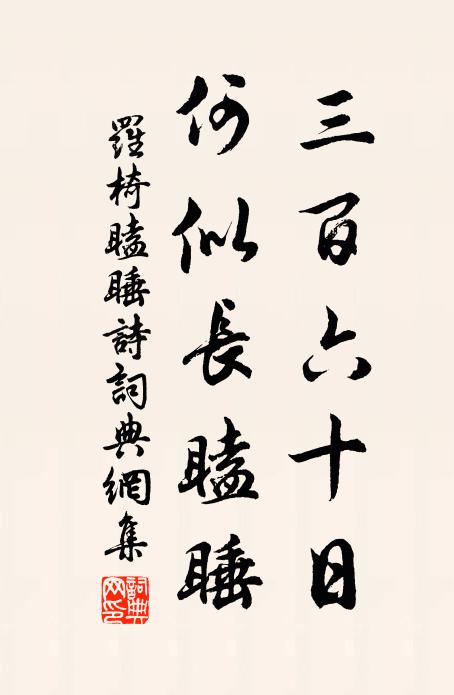 三百六十日
何似長瞌睡
羅椅瞌睡詩詞典網集
詞典網印